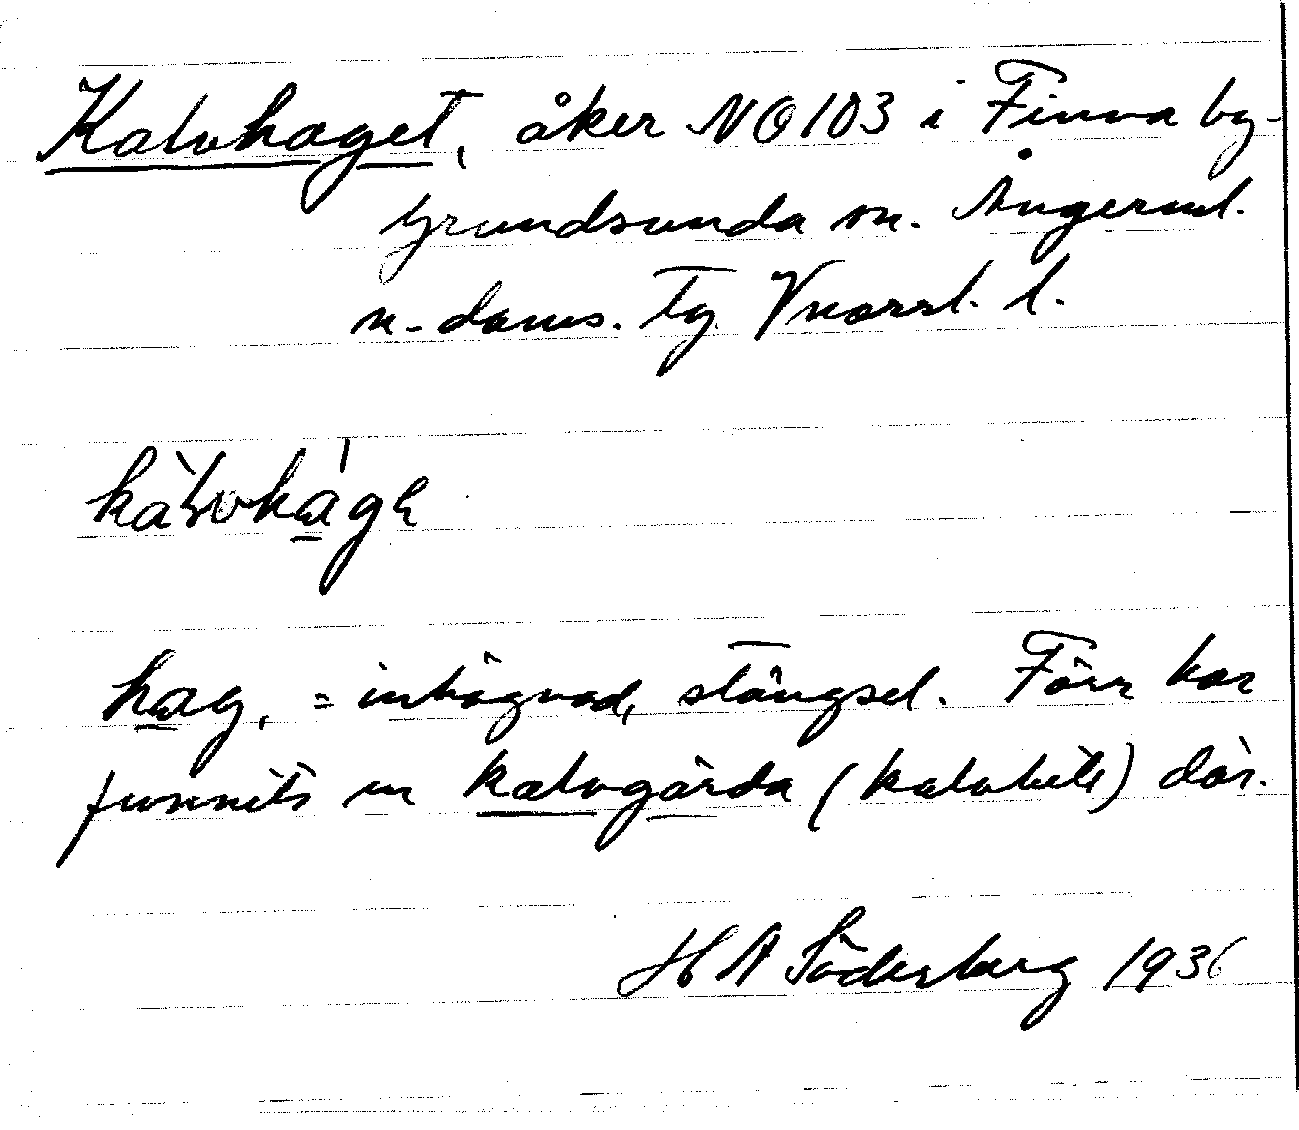 Kalvhaget, åker NO 103 i Finna by
Grundsunda sn. Ångerml.
n. doms. Tg Vnorrl. l.
hag, = inhägnad, stängsel. Förr har
funnits en kalvgärda (kalvbete) där.
H A Söderberg 1936